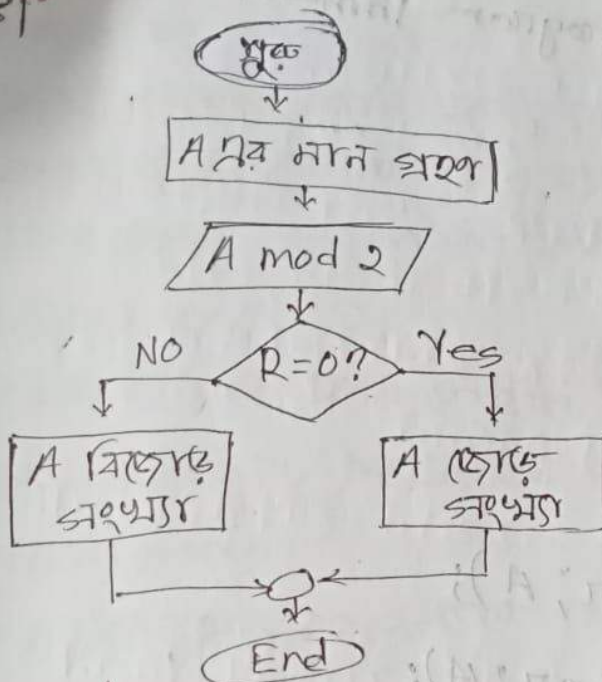 শুরু
A এর মান গ্রহণ
A mod 2
R=0?
NO
Yes
A বিজোড়
সংখ্যা
A জোড়
সংখ্যা
End